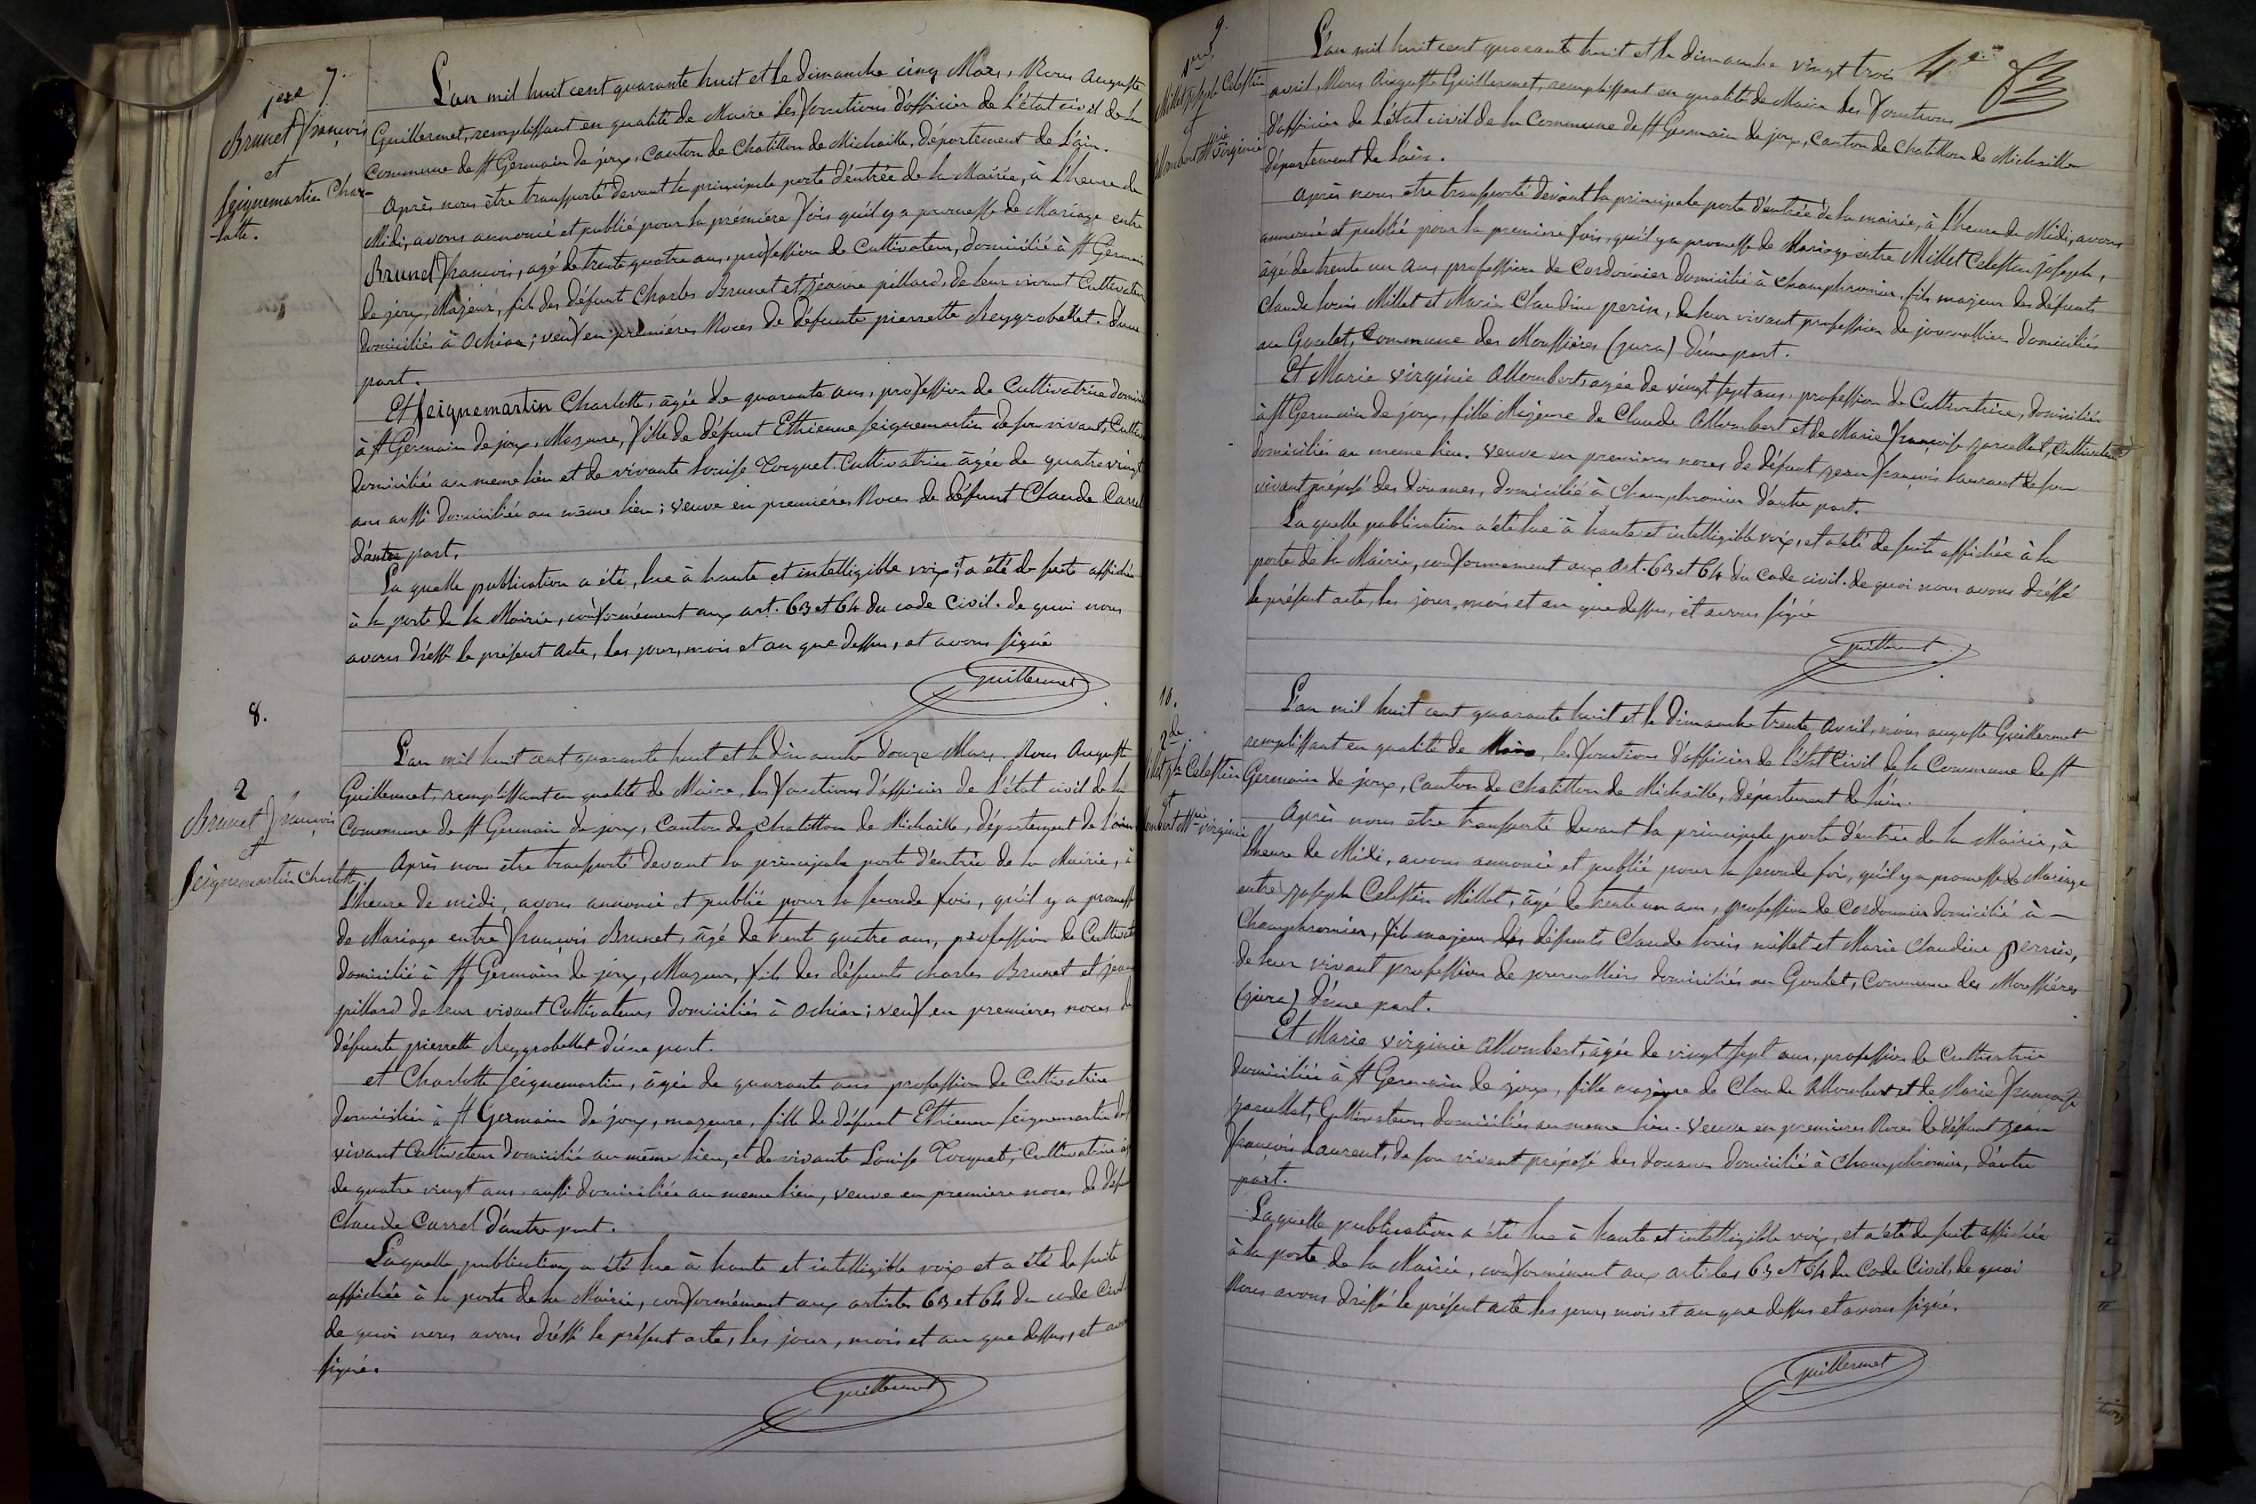 7.
1ere
Brunet François
et
Seignemartin Char-
lotte.
L'an mil huit cent quarante huit et le dimanche cinq Mars, Nous Auguste
Guillermet, remplissant en qualité de Maire les fonctions d'officier de l'état civil de la
Commune de St Germain de joux, Canton de Chatillon de Michaille, Département de L'ain.
Après nous être transporté devant la principale porte d'entrée de la Mairie, à l'heure de
Midi, avons annoncé et publié pour la première fois qu'il y a promesse de Mariage entre
Brunet François, agé de trente quatre ans, profession de Cultivateur, domicilié à St Germain
de joux, Majeur, fils des défunts Charles Brunet et jeanne pillard, de leur vivant Cultivateurs
domiciliés à Ochiaz; veuf en premières Noces de défunte pierrette Reygrobellet. d'une
part.
Et Seignemartin Charlotte, âgée de quarante ans, profession de Cultivatrice domiciliée
à St Germain de joux, Mazeure, fille de défunt Ethienne Seignemartin de son vivant, Cultiv
domicilié au meme lieu et de vivante Louise Tocquet. Cultivatrice âgée de quatre vingt
ans aussi domiciliée au même lieu; veuve en premières Noces de défunt Claude Carrel
d'autre part.
La quelle publication a été, lue à haute et intelligible voix et a été de suite affichée
à la porte de la Mairie, conformément aux art. 63 et 64 du code Civil. de quoi nous
avons dréssé le présent acte, les jour, mois et an que dessus, et avons signé
Guillermet
8.
2
Brunet François
et
Seignemartin Charlotte
L'an mil huit cent quarante huit et le dimanche douze Mars. Nous Auguste
Guillermet, remplissant en qualité de Maire, les fonctions d'officier de l'état civil de la
Commune de St Germain de joux, Canton de Chatillon de Michaille, département de l'ain
Après nous être transporté devant la principale porte d'entrée de la Mairie, à
L'heure de midi, avons annoncé et publié pour la seconde fois, qu'il y a promesse
de Mariage entre François Brunet, âgé de trent quatre ans, profession de Cultivat
domicilié à St Germain de joux, Mazeur, fils des défunts charles Brunet et jean
pillard de leur vivant Cultivateurs domiciliés à Ochiaz; veuf en premières noces de
défunte pierrette Reygrobellet d'une part.
et Charlotte Seignemartin, âgée de quarante ans profession de Cultivatrice
domiciliée à St Germain de joux, mazeure, fille de défunt Ethienne Seignemartin de s
vivant Cultivateur domicilié au même lieu, et de vivante Louise Tocquet, Cultivatrice a
de quatre vingt ans aussi domiciliée au meme lieu, veuve en premiere noces, de déf
Claude Carrel d'autre part.
Laquelle publication a été lue à haute et intelligible voix et a été de suite
affichée à la porte de la Mairie, conformément aux articles 63 et 64 du code Civil.
de quoi nous avons dréssé le présent acte, les jour, mois et an que dessus, et avo
signé.
Guillermet
4e
9.
1ere
Millet Joseph Celestin
et
Allombert Mie virginie
L'an mil huit cent quarante huit et le dimanche vingt trois
avril, Nous Auguste Guillermet, remplissant en qualité de Maire les fonctions
d'officier de l'état civil de la Commune de St Germain de joux, Canton de Chatillon de Michaille
département de l'ain.
Après nous être transporté devant la principale porte d'entrée de la mairie, à l'heure de Midi, avons
annoncé et publié pour la première fois, qu'il y a promesse de Mariage entre Millet Celestin Joseph,
âgé de trente un ans profession de Cordonnier domicilié à champfromier, fils majeur des défunts
Claude louis Millet et Marie Claudine perin, de leur vivant profession de journalliers domiciliés
au Goulet, Commune des Moussières (jura) d'une part.
Et Marie virginie Allombert, agée de vingt sept ans, profession de Cultivatrice, domiciliée
à St Germain de joux, fille Majeure de Claude Allombert et de Marie françoise zarcellat, Cultivateurs
domiciliés au meme lieu. veuve en premieres noces de défunt jean françois Laurant de son
vivant préposé des douanes, domicilié à Champfromier d'autre part.
La quelle publication a été lue à haute et intelligible voix, et a été de suite affichée à la
porte de la Mairie, conformement aux Art. 63 et 64 du Code civil. de quoi nous avons dréssé
le présent acte, les jour, mois et an que dessus, et avons signé
Guillermet
10.
2de
Millet Jh Celestin
et
Allombert Mie virginie
L'an mil huit cent quarante huit et le dimanche trente Avril, nous auguste Guillermet
remplissant en qualité de Maire, les fonctions d'officier de l'état Civil de la Commune de St
Germain de joux, Canton de Chatillon de Michaille, département de l'ain.
Après nous être transporté devant la principale porte d'entrée de la Mairie, à
l'heure de Midi, avons annoncé et publié pour la seconde fois, qu'il y a promesse de Mariage
entre Joseph Celestin Millet, âgé de trente un ans, profession de Cordonnier domicilié à -
Champfromier, fils majeur des défunts Claude louis millet et Marie Claudine perrin,
de leur vivant profession de journalliers domiciliés au Goulet, Commune des Moussières
(jura) d'une part.
Et Marie virginie Allombert, âgée de vingt sept ans, profession de Cultivatrice
domiciliée à St Germain de joux, fille majeure de Claude Allombert et de Marie Françoise
zarcellat, Cultivateurs domiciliés au meme lieu. veuve en premieres Noces de défunt jean
françois Laurent, de son vivant préposé des douanes domicilié à Champfromier, d'autre
part.
Laquelle publication a été lue à haute et intelligible voix, et a été de suite affichée
à la porte de la Mairie, conformément aux articles 63 et 64 du Code Civil, de quoi
Nous avons dréssé le présent acte les jour, mois et an que dessus et avons signé.
Guillermet